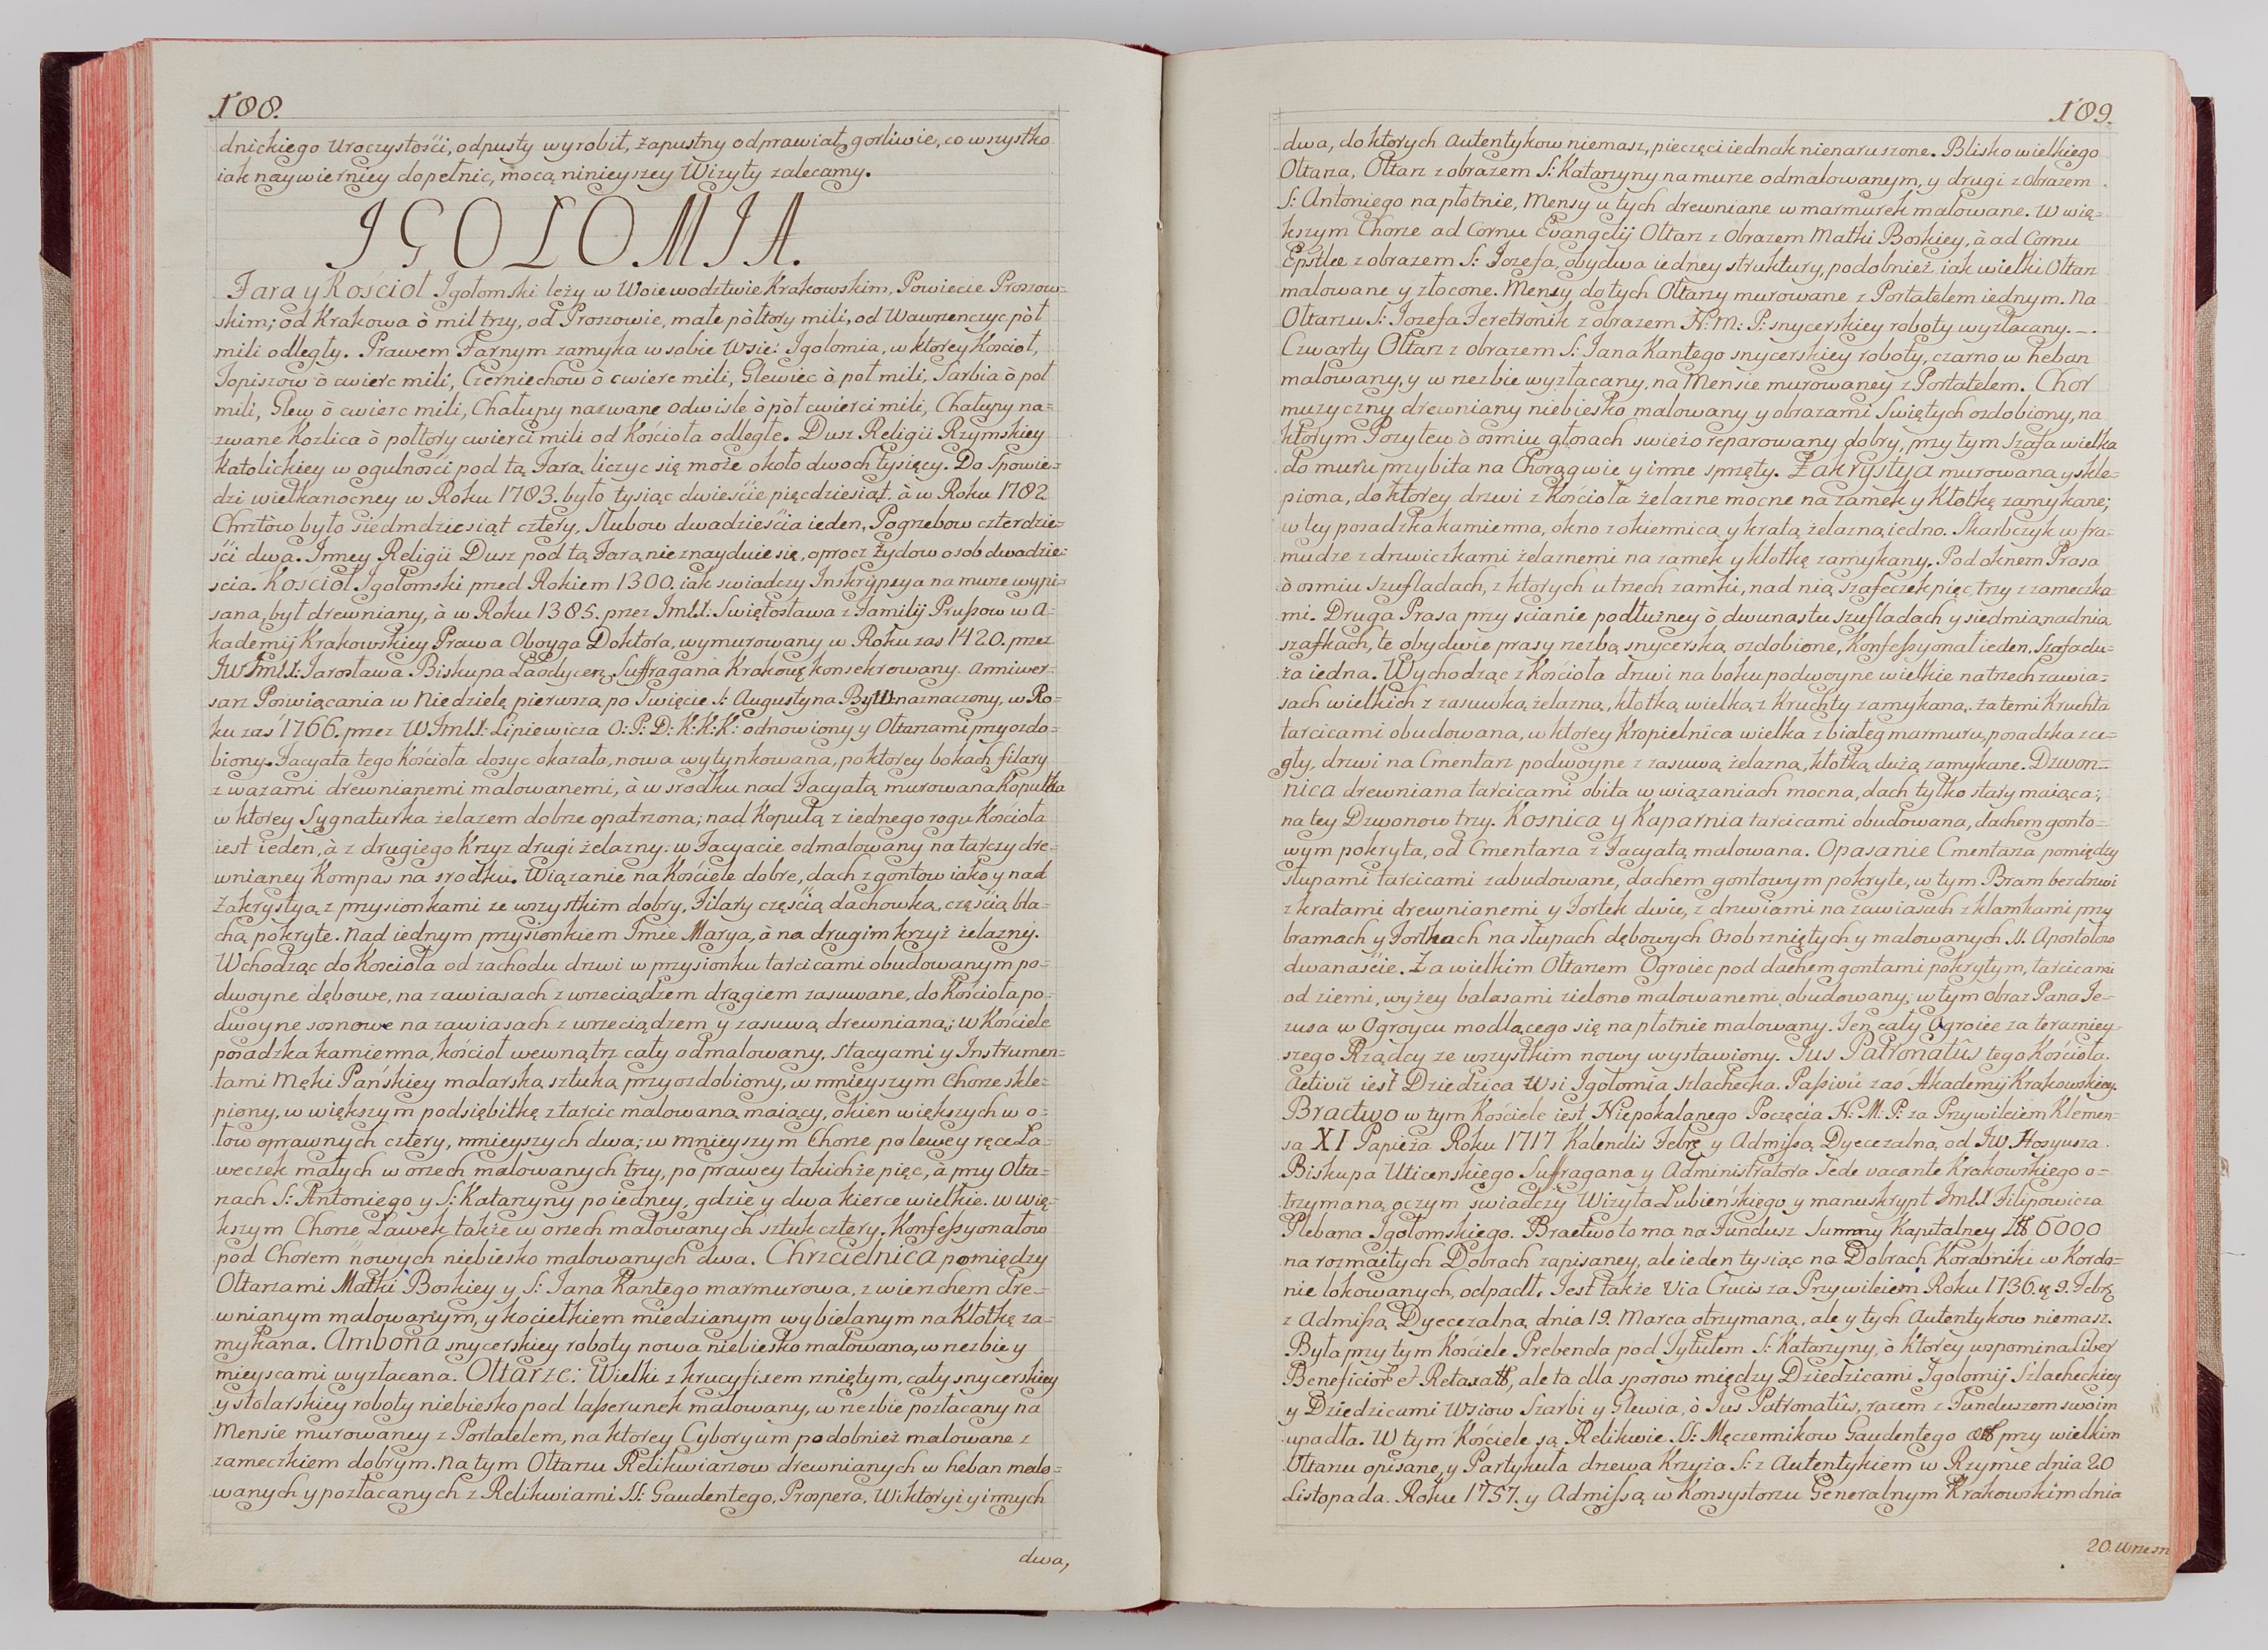 188.
dnickiego Uroczystości, odpusty wyrobił, Zapustny odprawiał, gorliwie, co wszystko
iak naywierniey dopełnic, mocą ninieyszey Wizyty zalecamy.
IGOLOMIA.
Fara y Kościoł Igołomski leży w Woiewodztwie Krakowskim, Powiecie Proszow=
skim; od Krakowa ò mil trzy, od Proszowic, małe pòłtory mili, od Wawrzenczyc pòł
mili odległy. Prawem Farnym zamyka w sobie Wsie: Igołomia, w ktorey Kościoł,
Topiszow ò cwierc mili, Czerniechow ò cwierc mili, Glewiec ò poł mili, Sarbia ò poł
mili, Glew ò cwierc mili, Chałupy nazwane Odwisle ò pòł cwierci mili, Chałupy na=
zwane Kozlica ò połtory cwierci mili od Kościoła odległe. Dusz Religii Rzymskiey
Katolickiey w ogulności pod tą Farą liczyc się może około dwoch tysięcy. Do Spowie=
dzi wielkanocney w Roku 1783. było tysiąc dwieście pięcdziesiąt. à w Roku 1782
Chrztòw było siedmdziesiąt cztery, Slubow dwadzieścia ieden, Pogrzebow czterdzie=
ści dwa. Inney Religii Dusz pod tą Farą nie znayduie się, oprocz Żydow osob dwadzie=
scia. Kościoł Igołomski przed Rokiem 1300. iak swiadczy Inskrypcya na murze wypi=
sana, był drewniany, à w Roku 1385. przez JmXX: Swiętosława z Familij Prußow w A=
kademij Krakowskiey Prawa Oboyga Doktora, wymurowany w Roku zas 1420. przez
JWJmXX: Jarosława Biskupa Laodycen. Suffragana Krakow. konsekrowany. Anniwer=
sarz Poswiącania w Niedzielę pierwszą po Swięcie S: Augustyna B. y W. naznaczony, w Ro=
ku zaś 1766. przez WJmXX: Lipiewicza O: P: D: K: K: K: odnowiony y Ołtarzami przyozdo=
biony. Facyata tego Kościoła dosyc okazała, nowa wytynkowana, po ktorey bokach filary
z wazami drewnianemi malowanemi, à w srodku nad Facyatą murowana Kopułka
w ktorey Sygnaturka żelazem dobrze opatrzona; nad Kopułą z iednego rogu Kościoła
iest ieden, à z drugiego Krzyz drugi żelazny. w Facyacie odmalowany na tarczy dre=
wnianey Kompas na srodku. Wiązanie na Kościele dobre, dach z gontow iako y nad
Zakrystyą z przysionkami ze wszystkim dobry, Filary częścią dachowką, częścią bla=
chą pokryte. Nad iednym przysionkiem Imie Marya, à na drugim krzyż żelazny.
Wchodząc do Kościoła od zachodu drzwi w przysionku tarcicami obudowanym po=
dwoyne dębowe, na zawiasach z wrzeciądzem drągiem zasuwane, do Kościoła po=
dwoyne sosnowe na zawiasach z wrzeciądzem y zasuwą drewnianą; w Kościele
posadzka kamienna, kościoł wewnątrz cały odmalowany, Stacyami y Instrumen=
tami Męki Pańskiey malarską sztuką przyozdobiony, w mnieyszym Chorze skle=
piony, w większym podsiębitkę z tarcic malowaną maiący, okien większych w o=
łow oprawnych cztery, mnieyszych dwa; w mnieyszym Chorze po lewey ręce La=
weczek małych w orzech malowanych trzy, po prawey takichże pięc, à przy Ołta=
rzach S: Antoniego y S: Katarzyny po iedney, gdzie y dwa kierce wielkie. w wię=
kszym Chorze Lawek także w orzech malowanych sztuk cztery, Konfeßyonałow
pod Chorem nowych niebiesko malowanych dwa. Chrzcielnica pomiędzy
Ołtarzami Matki Boskiey y S: Jana Kantego marmurowa, z wierzchem dre=
wnianym malowanym, y kociełkiem miedzianym wybielanym na Kłotkę za=
mykana. Ambona snycerskiey roboty nowa niebiesko malowana, w rzezbie y
mieyscami wyzłacana. Ołtarze: Wielki z krucyfixem rzniętym, cały snycerskiey
y stolarskiey roboty niebiesko pod laßerunek malowany, w rzezbie pozłacany na
Mensie murowaney z Portatelem, na ktorey Cyboryum podobnież malowane z
zameczkiem dobrym. Na tym Ołtarzu Relikwiarzow drewnianych w heban malo=
wanych y pozłacanych z Relikwiami SS: Gaudentego, Prospera, Wiktoryi y innych
dwa,
189.
dwa, do ktorych Autentykow niemasz, pieczęci iednak nienaruszone. Blisko wielkiego
Ołtarza, Ołtarz z obrazem S: Katarzyny na murze odmalowanym, y drugi z Obrazem
S: Antoniego na płotnie, Mensy u tych drewniane w marmurek malowane. W wię=
kszym Chorze ad Cornu Evangelij Ołtarz z Obrazem Matki Boskiey, à ad Cornu
Epstlæ z obrazem S: Jozefa, obydwa iedney struktury, podobnież iak wielki Ołtarz
malowane y złocone. Mensy do tych Ołtarzy murowane z Portatelem iednym. Na
Ołtarzu S: Jozefa Feretronik z obrazem N: M: P: snycerskiey roboty wyzłacany. —.
Czwarty Ołtarz z obrazem S: Jana Kantego snycerskiey roboty, czarno w heban
malowany, y w rzezbie wyzłacany, na Mensie murowaney z Portatelem. Chor
muzyczny drewniany niebiesko malowany y obrazami Swiętych ozdobiony, na
ktorym Pozytew ò osmiu głosach swieżo reparowany dobry, przy tym Szafa wielka
do muru przybita na Chorągwie y inne sprzęty. Zakrystya murowana y skle=
piona, do ktorey drzwi z Kościoła żelazne mocne na zamek y Kłotkę zamykane;
w tey posadzka kamienna, okno z okiennicą y kratą żelazną iedno. Skarbczyk w fra=
mudze z drzwiczkami żelaznemi na zamek y kłotkę zamykany. Pod oknem Prasa
ò osmiu szufladach, z ktorych u trzech zamki, nad nią szafeczek pięc, trzy z zameczka=
mi. Druga Prasa przy scianie podłużney ò dwunastu szufladach y siedmią nad nią
szafkach, te obydwie prasy rzezbą snycerską ozdobione, Konfeßyonał ieden, Szafa du=
ża iedna. Wychodząc z Kościoła drzwi na boku podwoyne wielkie na trzech zawia=
sach wielkich z zasuwką żelazną, kłotką wielką z Kruchty zamykaną. Za temi Kruchta
tarcicami obudowana, w ktorey Kropielnica wielka z białeg marmuru, posadzka z ce=
gły, drzwi na Cmentarz podwoyne z zasuwą żelazną, kłotką dużą zamykane. Dzwon=
nica drewniana tarcicami obita w wiązaniach mocna, dach tylko stary maiąca;
na tey Dzwonow trzy. Kosnica y Kaparnia tarcicami obudowana, dachem gonto=
wym pokryta, od Cmentarza z Facyatą malowaną. Opasanie Cmentarza pomiędzy
słupami tarcicami zabudowane, dachem gontowym pokryte, w tym Bram bez drzwi
z kratami drewnianemi y Fortek dwie, z drzwiami na zawiasach z klamkami przy
bramach y Fortkach na słupach dębowych Osob rzniętych y malowanych SS. Apostołow
dwanaście. Za wielkim Ołtarzem Ogroiec pod dachem gontami pokrytym, tarcicami
od ziemi, wyżey balasami zielono malowanemi obudowany; w tym obraz Pana Je=
zusa w Ogroycu modlącego się na płotnie malowany. Ten cały Ogroiec za teraźniey=
szego Rządcy ze wszystkim nowy wystawiony. Jus Patronatûs tego Kościoła.
Activû iest Dziedzica Wsi Igołomia szlachecka. Paßivû zaś Akademij Krakowskiey.
Bractwo w tym Kościele iest Niepokalanego Poczęcia N: M: P: za Przywileiem Klemen=
sa XI Papieża Roku 1717 Kalendis Febr. y Admißą Dyecezalną od JW. Hosyusza
Biskupa Uticenskiego Suffragana y Administratora Sede vacante Krakowskiego o=
trzymaną, oczym swiadczy Wizyta Lubieńskiego y manuskrypt JmXX Filipowicza
Plebana Igołomskiego. Bractwo to ma na Fundusz Summy Kapitalney 6000
na rozmaitych Dobrach zapisaney, ale ieden tysiąc na Dobrach Korabniki w Kordo=
nie lokowanych, odpadł. Jest także Via Crucis za Przywileiem Roku 1736. 9. Febr.
z Admißą Dyecezalną dnia 19. Marca otrzymaną, ale y tych Autentykow niemasz.
Była przy tym Kościele Prebenda pod Tytułem S: Katarzyny, ò Ktorey wspomina Liber
Beneficior et Retaxat, ale ta dla sporow między Dziedzicami Igołomij Szlacheckiey
y Dziedzicami Wsiow Szarbi y Glewia, ò Jus Patronatûs, razem z Funduszem swoim
upadła. W tym Kościele są Relikwie SS: Męczennikow Gaudentego przy wielkim
Ołtarzu opisane, y Partykuła drzewa Krzyża S: z Autentykiem w Rzymie dnia 20
Listopada. Roku 1757. y Admißą w Konsystorzu Generalnym Krakowskim dnia
20. wrzesn